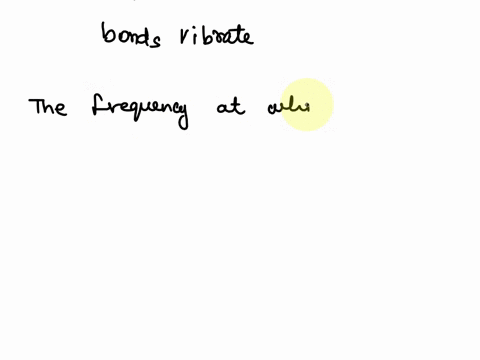 bonds vibrate
The frequency at whi